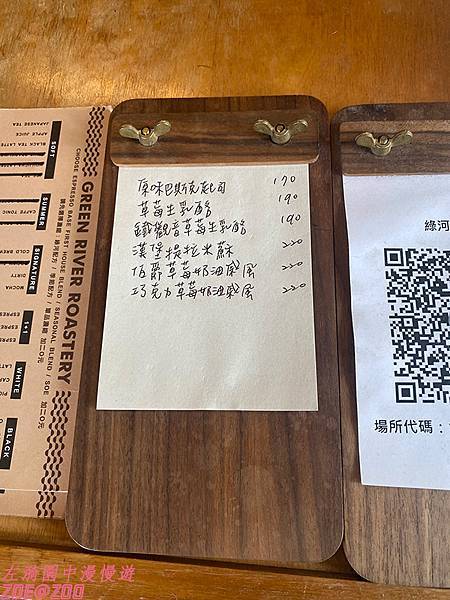 原味巴斯克起司 170
草莓生乳酪 190
鐵觀音草莓生乳酪 190
漢堡提拉米蘇 220
伯爵草莓奶油戚風 220
巧克力草莓奶油戚風 220
GREEN RIVER ROASTERY
CHOOSE ESPRESSO BASE FIRST HOUSE BLEND / SEASONAL BLEND / SOE
加二0元
SOFT
BLACK TEA LATTE
APPLE JUICE
JAPANESE TEA
SUMMER
CAFFE TONIC
SIGNATURE
COLD BREW
DIRTY
MOCHA
1+1
ESPRE
WHITE
BLACK
綠河
場所代碼：
左瀬園中漫慢遊
ZOE@ZOO